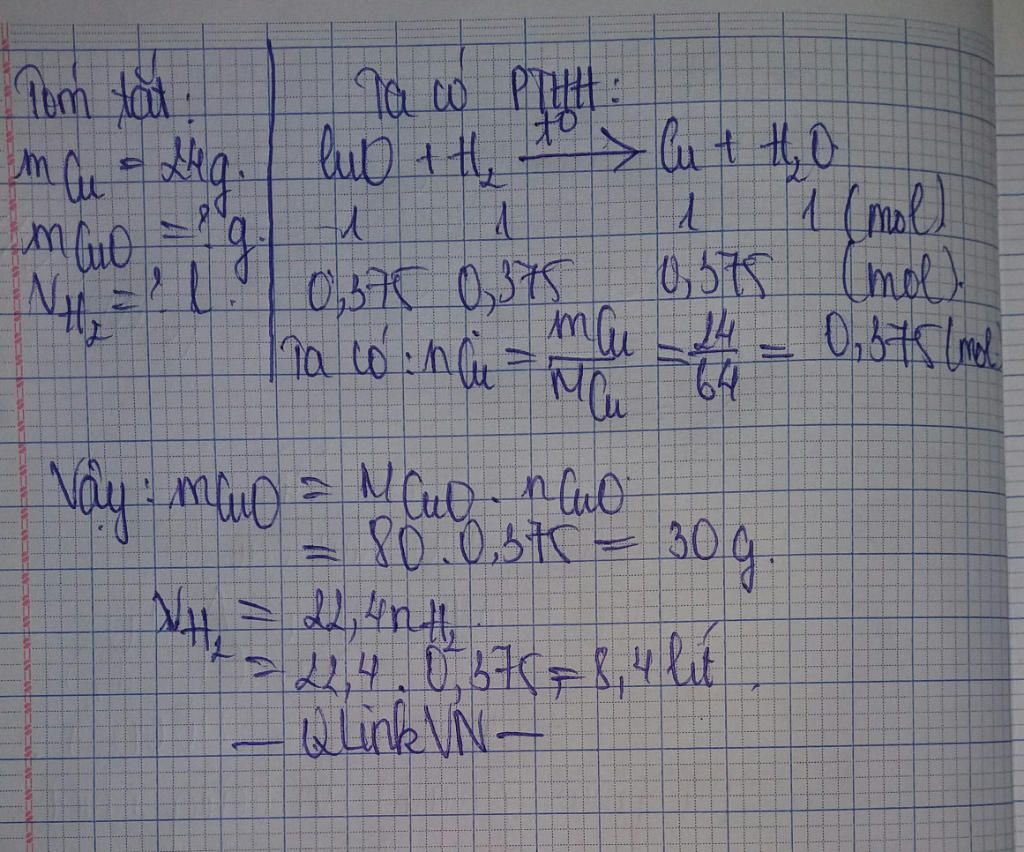 Tóm tắt:
mCu = 24g.
mCuO = ? g.
VH₂ = ? l.
Ta có PTHH:
CuO + H₂ t⁰→ Cu + H₂O
1 1 1 1 (mol)
0,375 0,375 0,375 (mol).
Ta có: nCu = mCu/MCu = 24/64 = 0,375 (mol
Vậy: mCuO = MCuO . nCuO
= 80 . 0,375 = 30 g.
VH₂ = 22,4 nH₂
= 22,4 . 0,375 = 8,4 lít.
— QLinkVN —